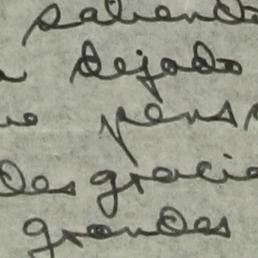 saliendo
dejado
pens
desgracia
grandes